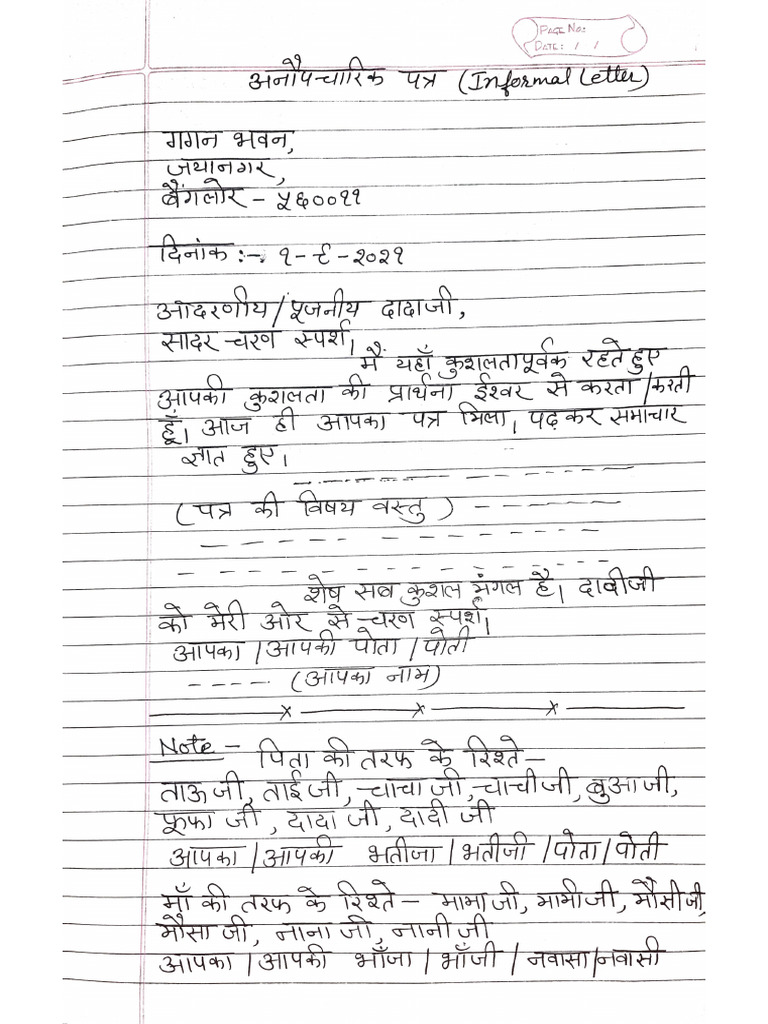 PAGE No:
DATE: / /
अनौपचारिक पत्र (Informal Letter)
गगन भवन,
जयानगर,
बैंगलोर - ५६००११
दिनांक :- १-९-२०२१
आदरणीय/पूजनीय दादाजी,
सादर चरण स्पर्श,
मैं यहाँ कुशलतापूर्वक रहते हुए
आपकी कुशलता की प्रार्थना ईश्वर से करता/करती
हूँ। आज ही आपका पत्र मिला, पढ़कर समाचार
ज्ञात हुए।
(पत्र की विषय वस्तु)
शेष सब कुशल मंगल है। दादीजी
को मेरी ओर से चरण स्पर्श।
आपका/आपकी पोता/पोती
(आपका नाम)
Note - पिता की तरफ के रिश्ते -
ताऊ जी, ताई जी, चाचा जी, चाची जी, बुआ जी,
फूफा जी, दादा जी, दादी जी
आपका/आपकी भतीजा/भतीजी/पोता/पोती
माँ की तरफ के रिश्ते - मामा जी, मामी जी, मौसी जी,
मौसा जी, नाना जी, नानी जी
आपका/आपकी भाँजा/भाँजी/नवासा/नवासी